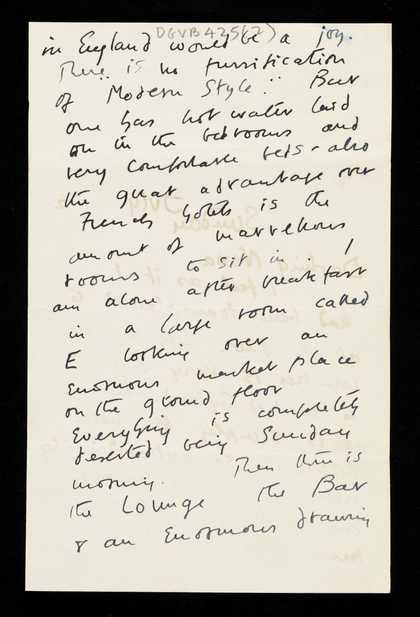 DGVB425(2)
in England would be a joy.
There is no
of Modern Style". But
one has hot water laid
on in the bedrooms and
very comfortable beds - also
the great advantage over
French hotels is the
amount of marvellous
rooms to sit in. I
am alone after breakfast
in a large room called
E looking over an
Enormous market place
on the ground floor
Everything is completely
deserted being Sunday
morning. Then there is
the Lounge the Bar
& an Enormous drawing